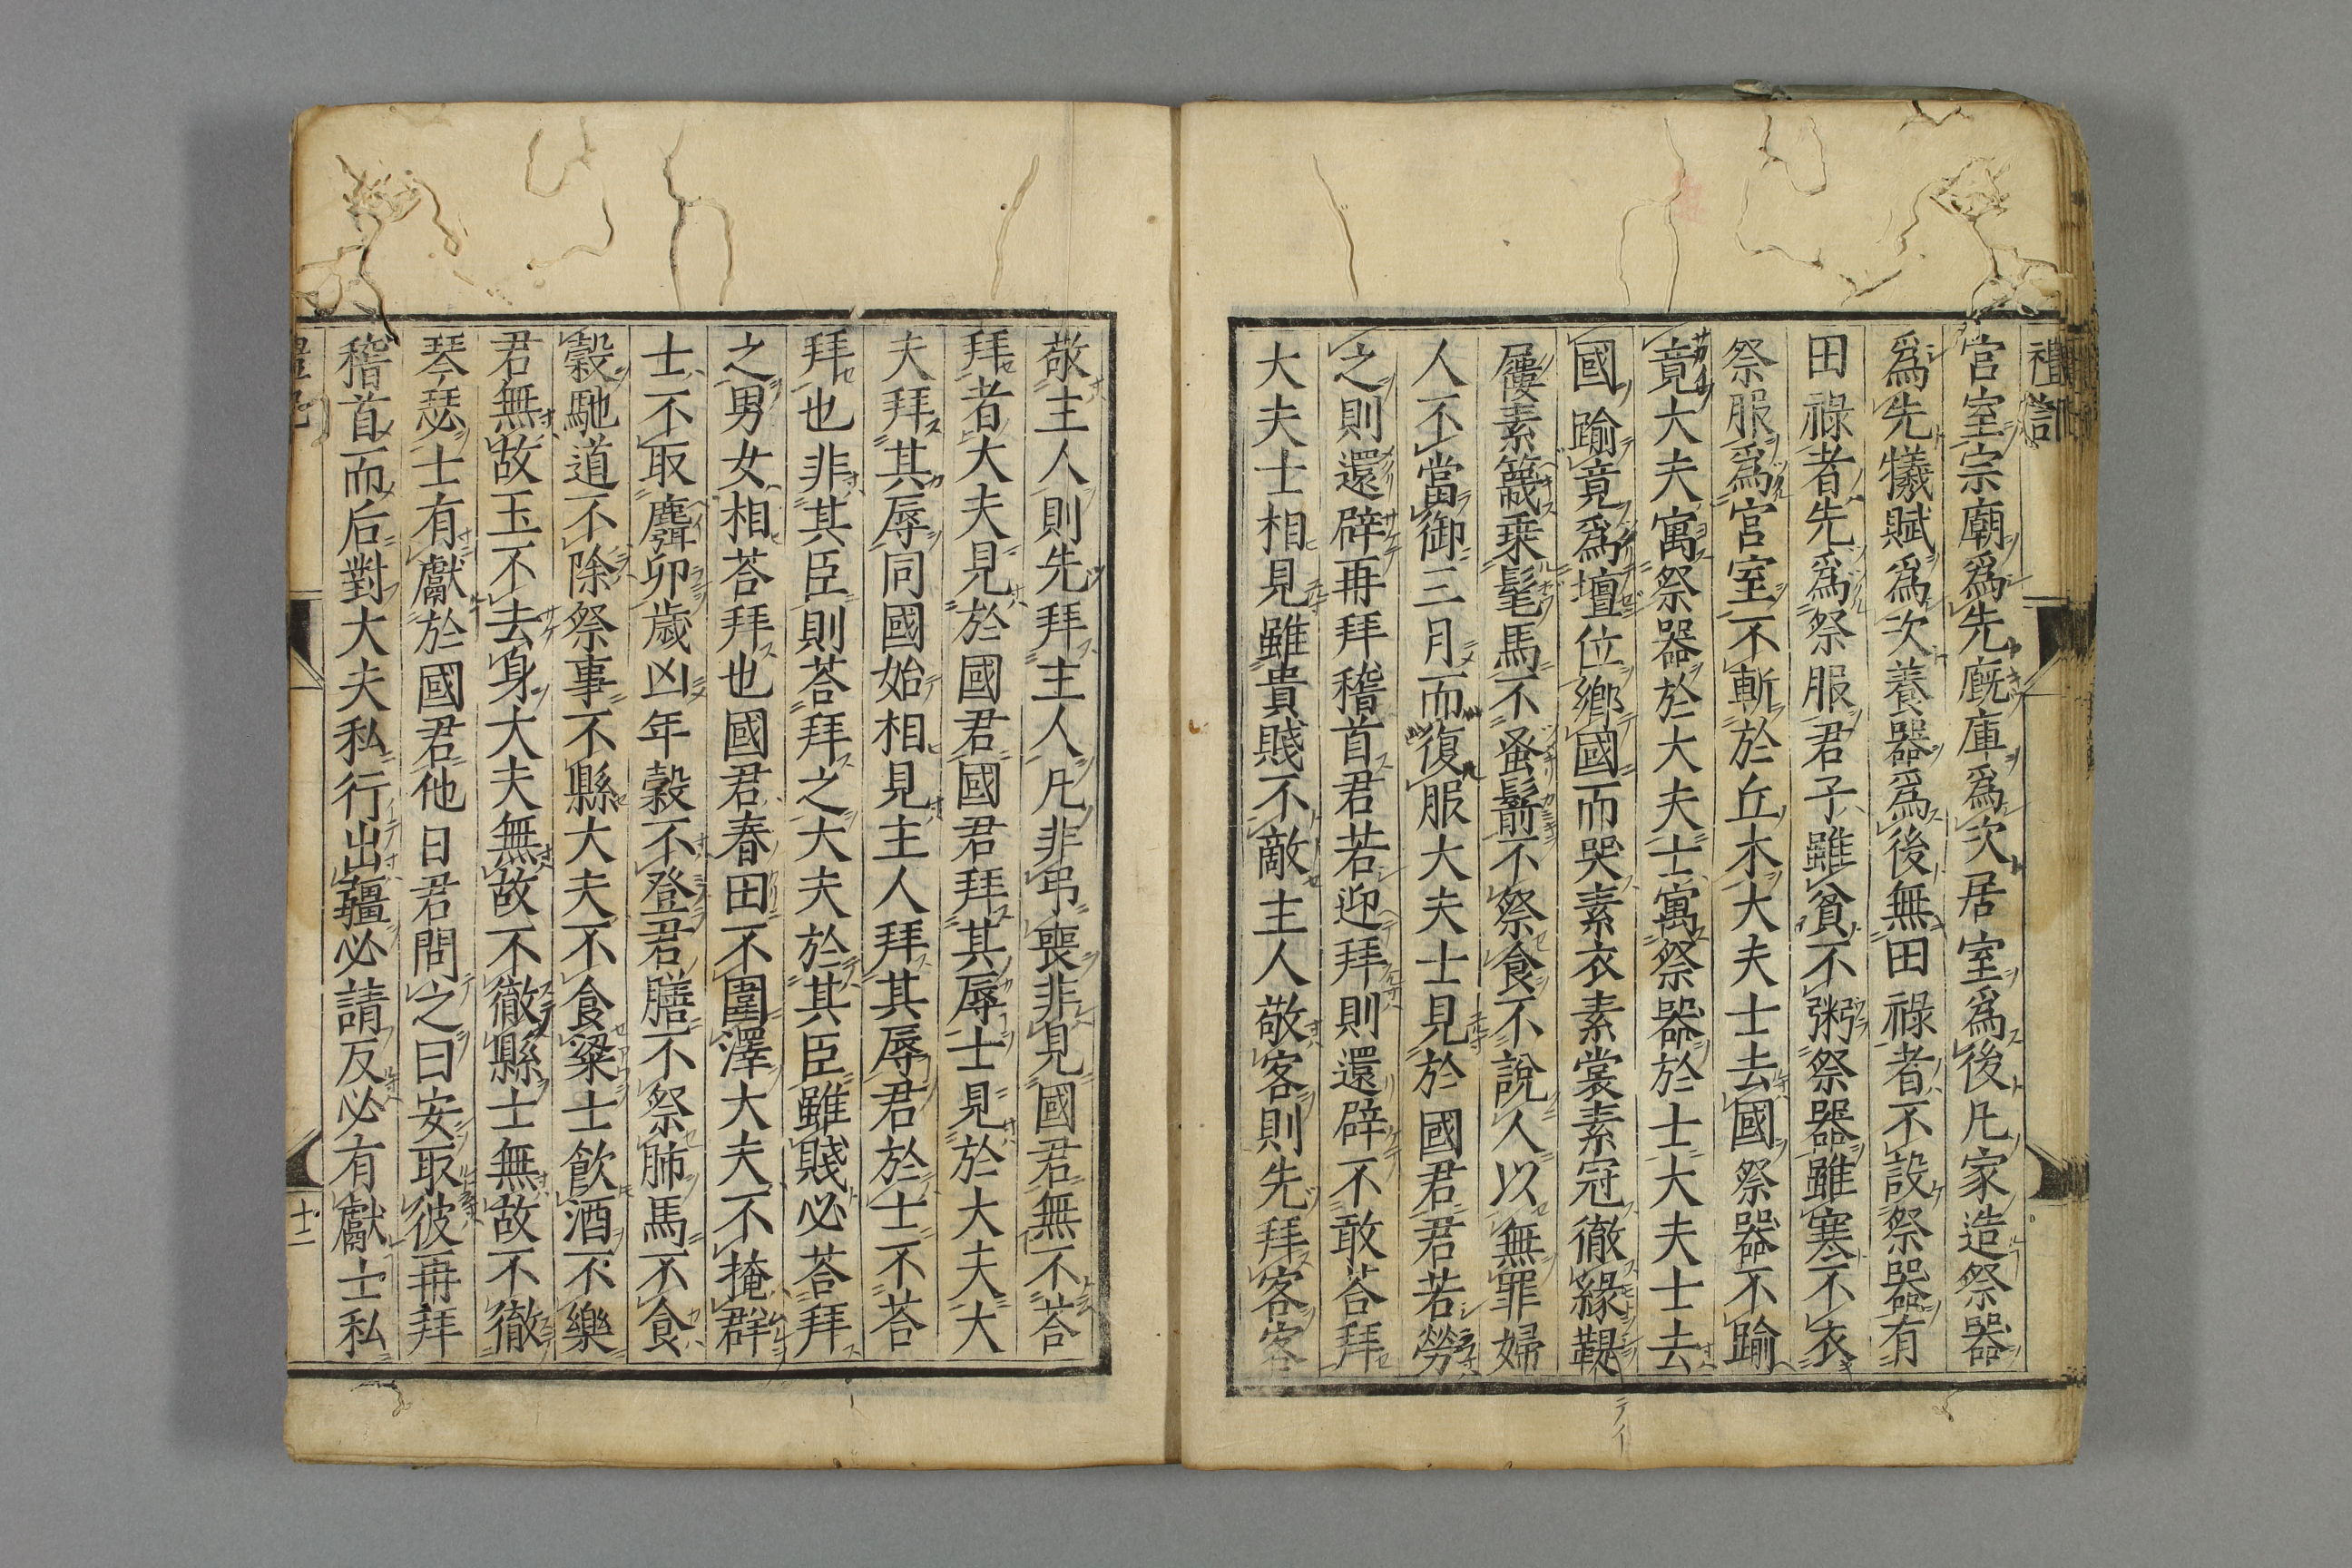 禮記
宮室宗廟爲先廐庫爲次居室爲後凡家造祭器
爲先犧賦爲次養器爲後無田祿者不設祭器有
田祿者先爲祭服君子雖貧不粥祭器雖寒不衣
祭服爲宮室不斬於丘木大夫士去國祭器不踰
竟大夫寓祭器於大夫士寓祭器於士大夫士去
國踰竟爲壇位鄉國而哭素衣素裳素冠徹緣鞮
屨素簚乗髦馬不蚤鬋不祭食不說人以無罪婦
人不當御三月而復服大夫士見於國君君若勞
之則還辟再拜稽首君若迎拜則還辟不敢荅拜
大夫士相見雖貴賤不敵主人敬客則先拜客客
敬主人則先拜主人凡非弔喪非見國君無不荅
拜者大夫見於國君國君拜其辱士見於大夫大
夫拜其辱同國始相見主人拜其辱君於士不荅
拜也非其臣則荅拜之大夫於其臣雖賤必荅拜
之男女相荅拜也國君春田不圍澤大夫不掩群
士不取麛卵歲凶年穀不登君膳不祭肺馬不食
穀馳道不除祭事不縣大夫不食粱士飲酒不樂
君無故玉不去身大夫無故不徹縣士無故不徹
琴瑟士有獻於國君他日君問之曰安取彼再拜
稽首而后對大夫私行出疆必請反必有獻士私
十二